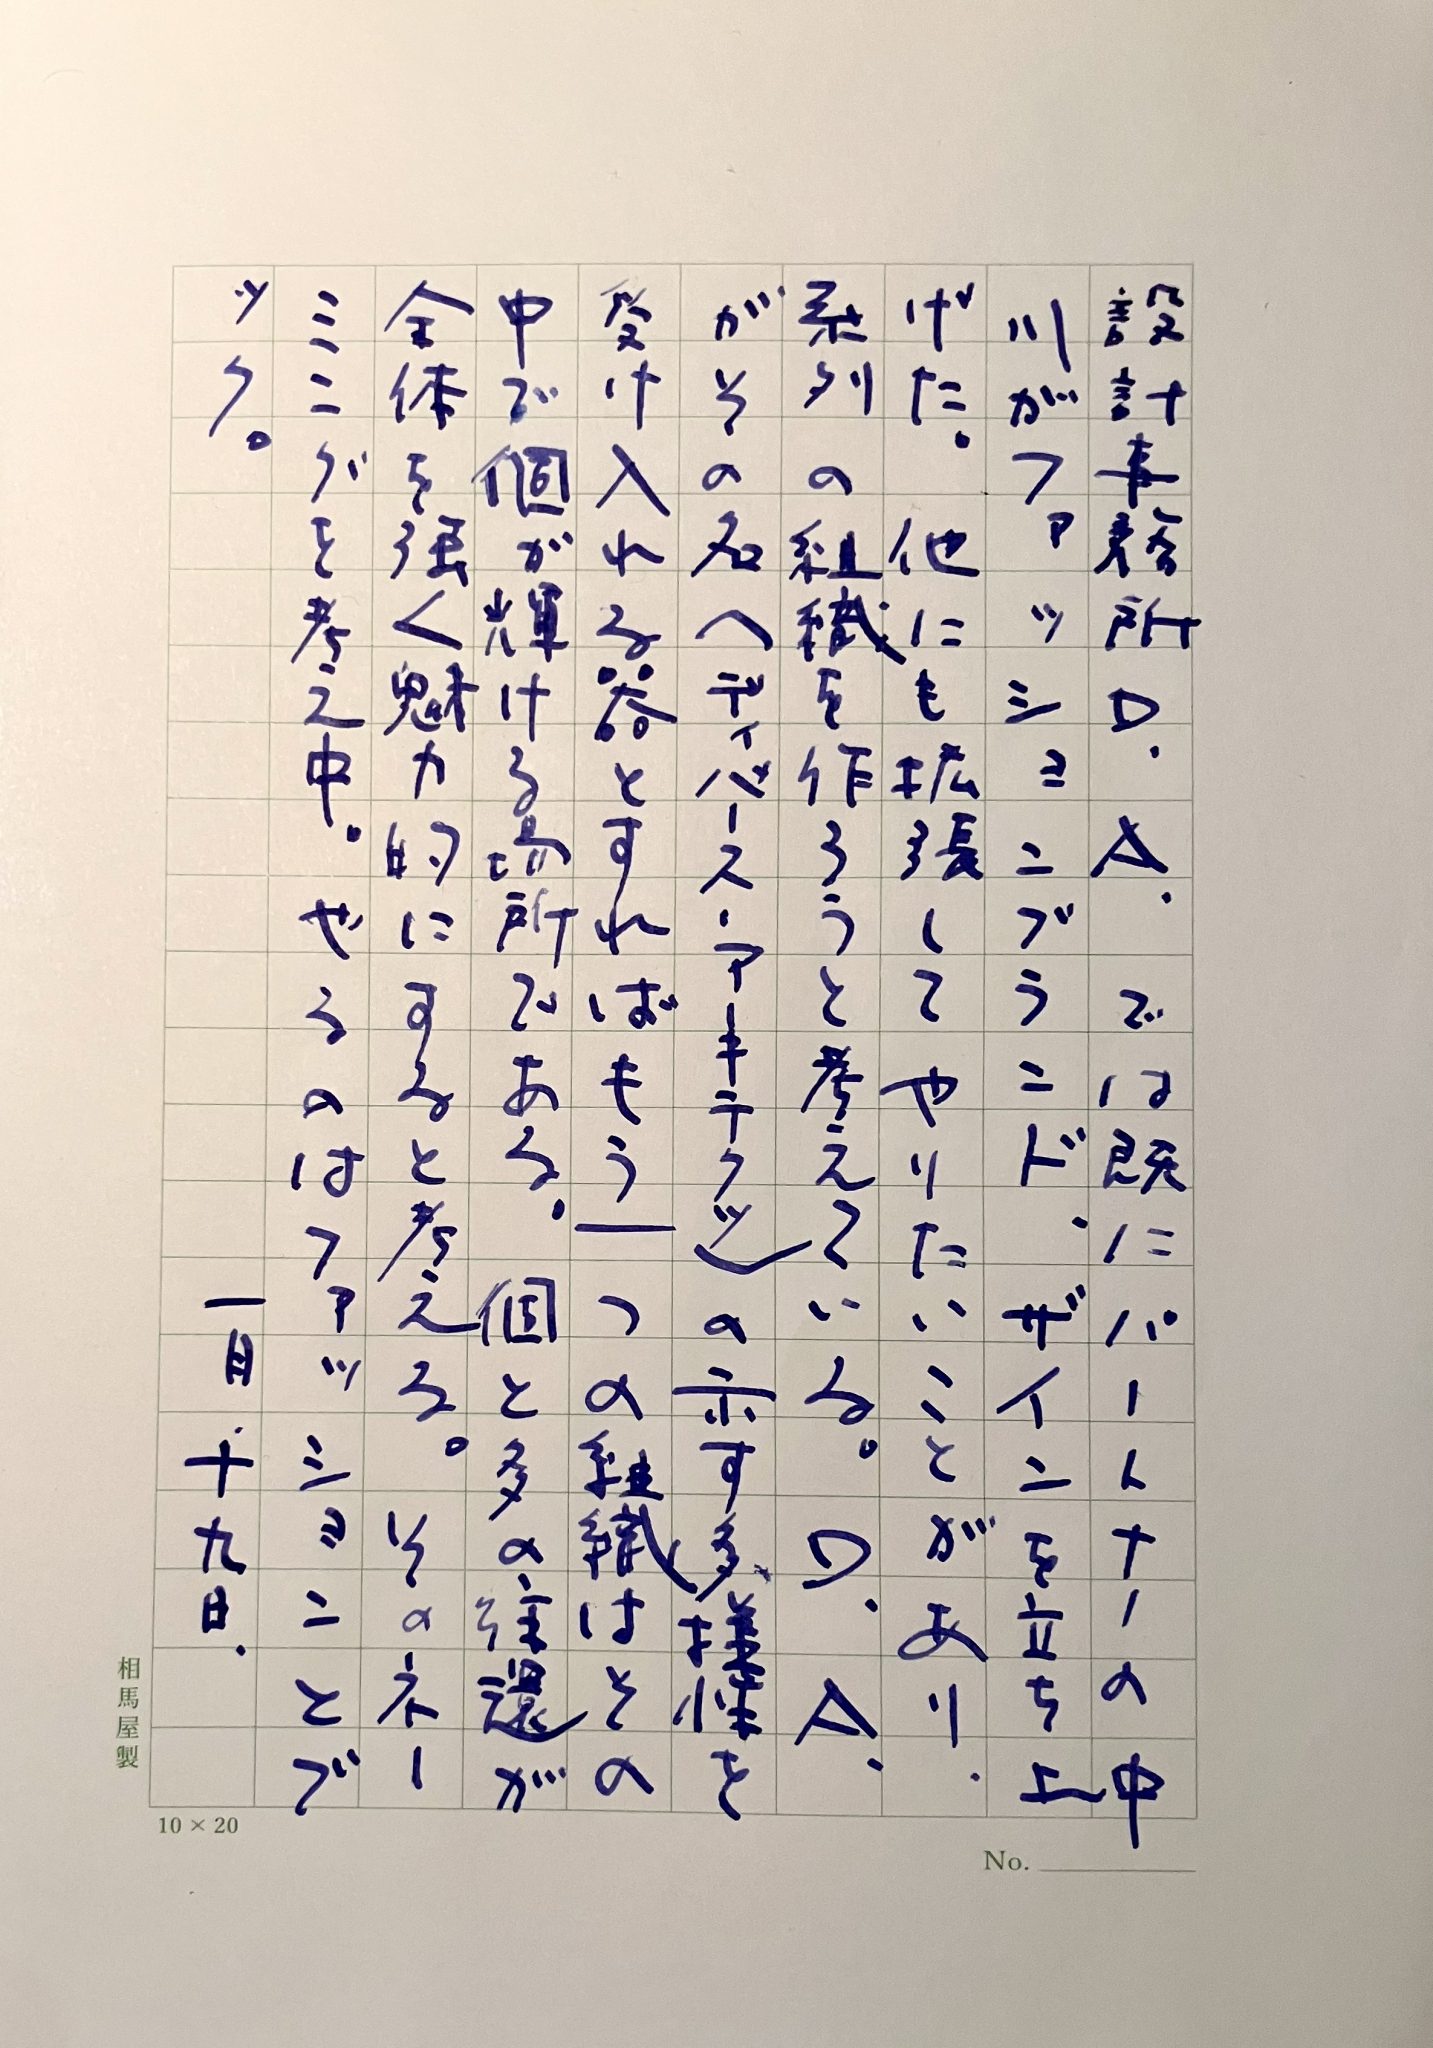 設計事務所D.A.では既にパートナーの中
川がファッションブランド.ザインを立ち上
げた。他にも拡張してやりたいことがあり.
系列の組織を作ろうと考えている。D.A.
がその名へディバース・アーキテクツの示す多様性を
受け入れる器とすればもう一つの組織はその
中で個が輝ける場所である。個と多の往還が
全体を強く魅力的にすると考える。そのネー
ミングを考え中.やるのはファッションとブ
ック。
一月.十九日.
相馬屋製
10×20
No.